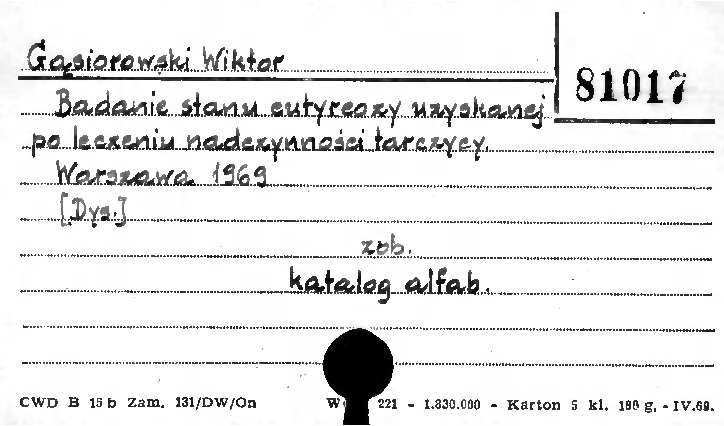 Gąsiorowski Wiktor
81017
Badanie stanu eutyreozy uzyskanej
po leczeniu nadczynności tarczycy.
Warszawa 1969
[Dys.]
zob.
katalog alfab.
CWD B 15b Zam. 131/DW/On 221 - 1.830.000 - Karton 5 kl. 180 g. - IV.69.